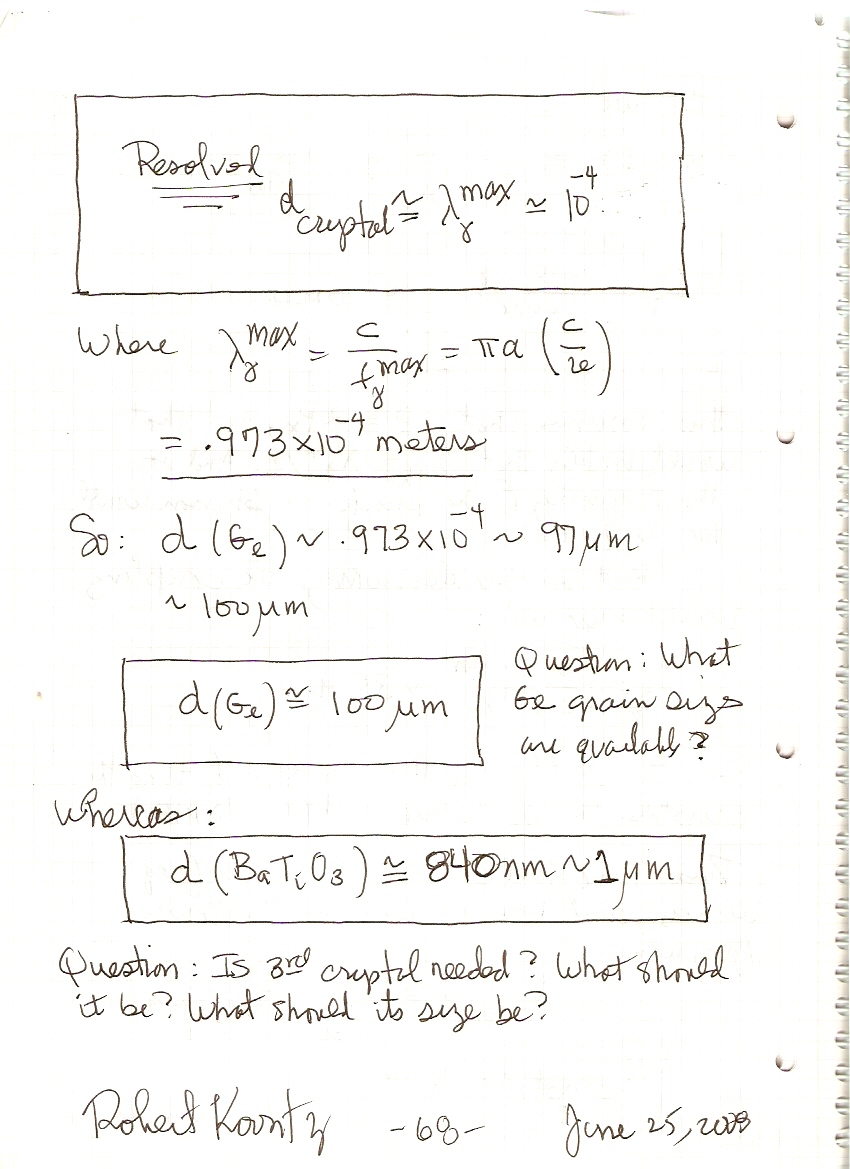 Resolved
d crystal ≅ λγ^max ≃ 10^-4
Where λγ^max = c / fγ^max = πa (c / 2e)
= .973×10^-4 meters
So: d (Ge) ~ .973×10^-4 ~ 97 μm
~ 100 μm
d(Ge) ≅ 100 μm
Question: What
Ge grain sizes
are available?
Whereas:
d (BaTiO3) ≅ 840nm ~ 1 μm
Question: Is 3rd crystal needed? What should
it be? What should its size be?
Robert Koontz -68- June 25,